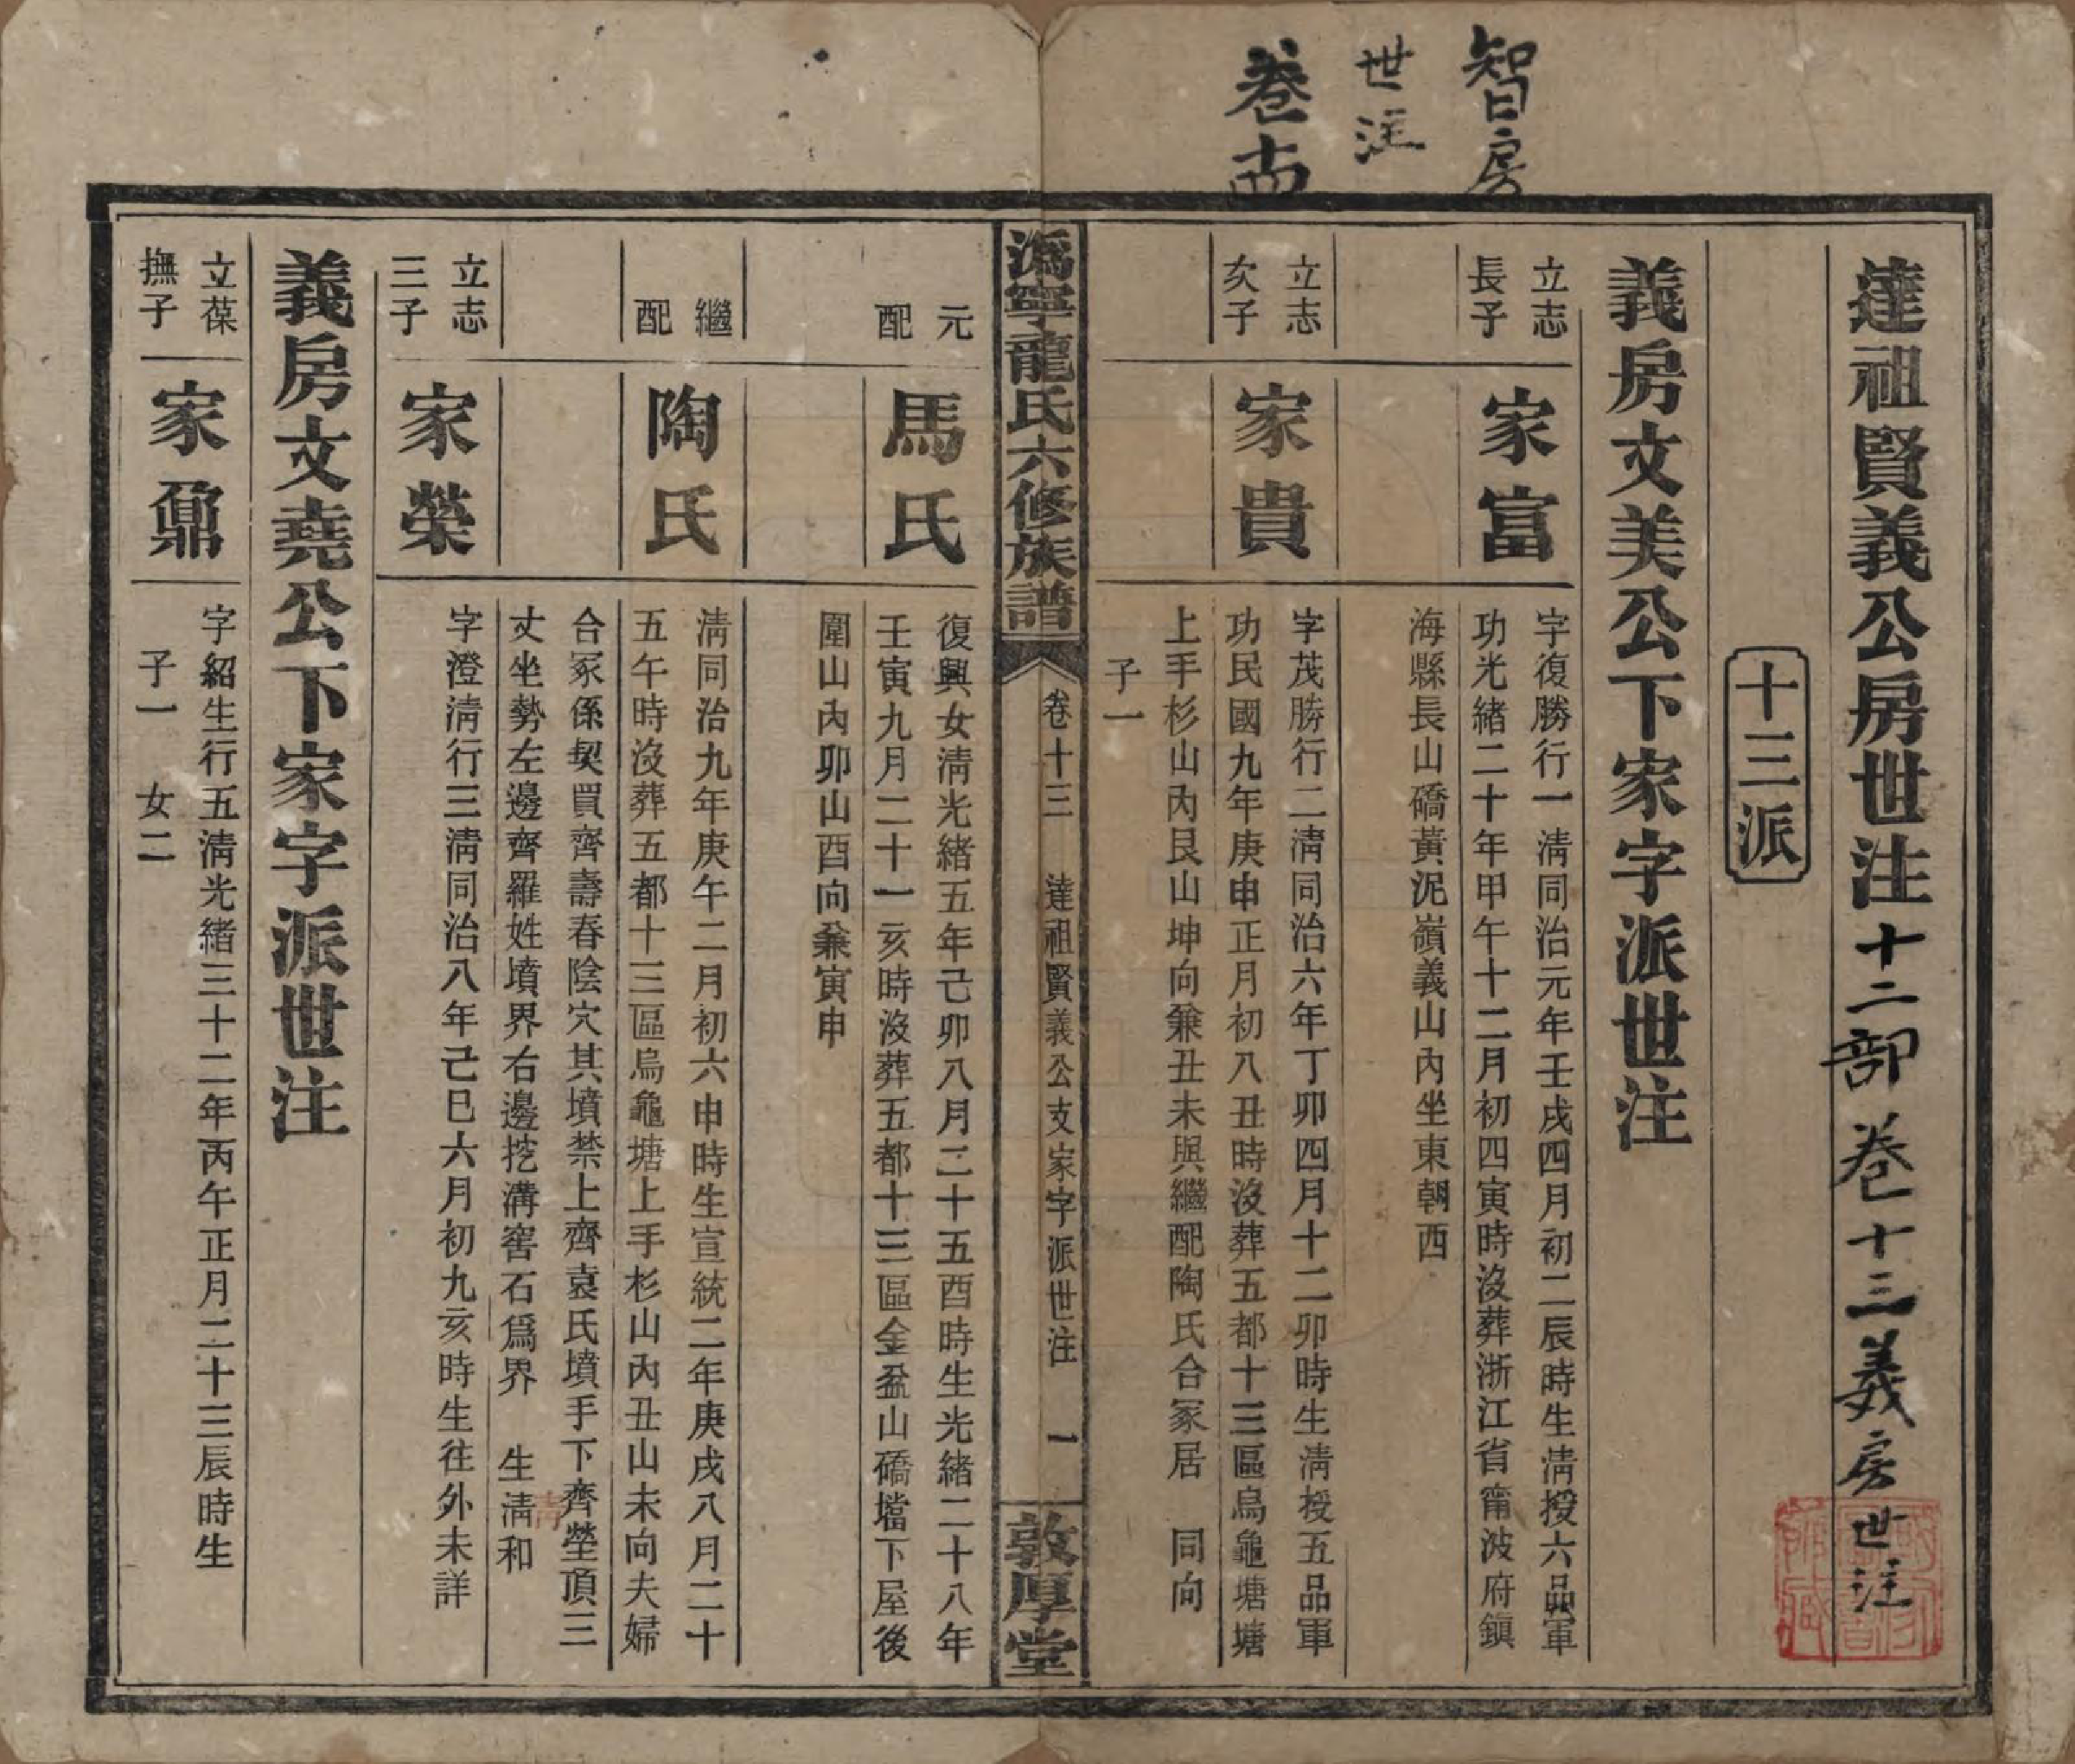 智房
世注
卷十四
達祖賢義公房世注十二部卷十三義房世注
十三派
義房文美公下家字派世注
立志
長子
家富
字復勝行一清同治元年壬戌四月初二辰時生清授六品軍
功光緒二十年甲午十二月初四寅時沒葬浙江省甯波府鎮
海縣長山礄黃泥嶺義山內坐東朝西
立志
次子
家貴
字茂勝行二清同治六年丁卯四月十二卯時生清授五品軍
功民國九年庚申正月初八丑時沒葬五都十三區烏龜塘塘
上手杉山內艮山坤向兼丑未與繼配陶氏合冢居 同向
子一
溈寧龍氏六修族譜
卷十三 達祖賢義公支家字派世注 一
敦厚堂
元
配
馬氏
復興女清光緒五年己卯八月二十五酉時生光緒二十八年
壬寅九月二十一亥時沒葬五都十三區金盆山礄壋下屋後
圍山內卯山酉向兼寅申
繼
配
陶氏
清同治九年庚午二月初六申時生宣統二年庚戌八月二十
五午時沒葬五都十三區烏龜塘上手杉山內丑山未向夫婦
合冢係契買齊壽春陰穴其墳禁上齊袁氏墳手下齊塋頂三
丈坐勢左邊齊羅姓墳界右邊挖溝窖石爲界 生清和
清
立志
三子
家榮
字澄清行三清同治八年己巳六月初九亥時生往外未詳
義房文堯公下家字派世注
立葆
撫子
家鼐
字紹生行五清光緒三十二年丙午正月二十三辰時生
子一 女二